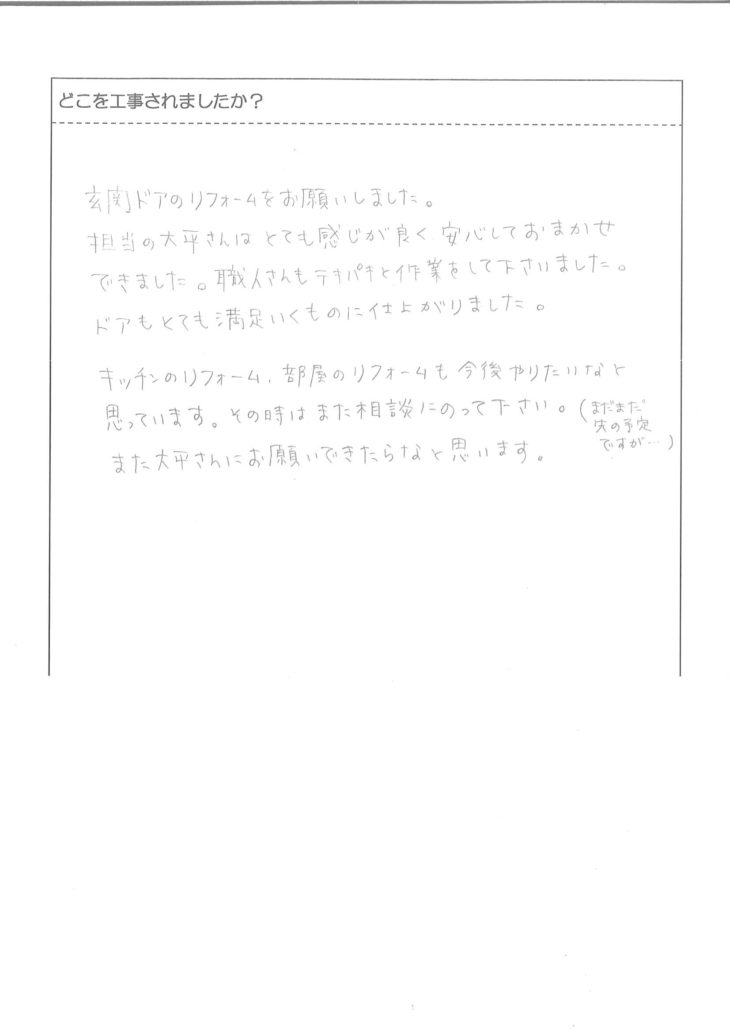 どこを工事されましたか？
玄関ドアのリフォームをお願いしました。
担当の大平さんはとても感じが良く、安心しておまかせ
できました。職人さんもテキパキと作業をして下さいました。
ドアもとても満足いくものに仕上がりました。
キッチンのリフォーム、部屋のリフォームも今後やりたいなと
思っています。その時はまた相談にのって下さい。(まだまだ
先の予定
ですが…)
また大平さんにお願いできたらなと思います。